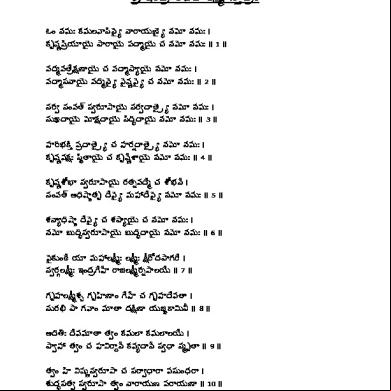 ఓం నమః కమలవాసిన్యై నారాయణ్యై నమో నమః ।
కృష్ణప్రియాయై సారాయై పద్మాయై చ నమో నమః ॥ 1 ॥
పద్మపత్రేక్షణాయై చ పద్మాస్యాయై నమో నమః ।
పద్మాసనాయై పద్మిన్యై వైష్ణవ్యై చ నమో నమః ॥ 2 ॥
సర్వ సంపత్ స్వరూపాయై సర్వదాత్ర్యై నమో నమః ।
సుఖదాయై మోక్షదాయై సిద్ధిదాయై నమో నమః ॥ 3 ॥
హరిభక్తి ప్రదాత్ర్యై చ హర్షదాత్ర్యై నమో నమః ।
కృష్ణవక్షః స్థితాయై చ కృష్ణేశాయై నమో నమః ॥ 4 ॥
కృష్ణశోభా స్వరూపాయై రత్నపద్మే చ శోభనే ।
సంపత్ అధిష్ఠాతృ దేవ్యై మహాదేవ్యై నమో నమః ॥ 5 ॥
శస్యాధిష్ఠా దేవ్యై చ శస్యాయై చ నమో నమః ।
నమో బుద్ధిస్వరూపాయై బుద్ధిదాయై నమో నమః ॥ 6 ॥
వైకుంఠే యా మహాలక్ష్మీః లక్ష్మీః క్షీరోదసాగరే ।
స్వర్గలక్ష్మీః ఇంద్రగేహే రాజలక్ష్మీర్నృపాలయే ॥ 7 ॥
గృహలక్ష్మీశ్చ గృహిణాం గేహే చ గృహదేవతా ।
సురభి సా గవాం మాతా దక్షిణా యజ్ఞకామినీ ॥ 8 ॥
అదితిః దేవమాతా త్వం కమలా కమలాలయే ।
స్వాహా త్వం చ హవిర్దానే కవ్యదానే స్వధా స్మృతా ॥ 9 ॥
త్వం హి విష్ణుస్వరూపా చ సర్వాధారా వసుంధరా ।
శుద్ధసత్వ స్వరూపా త్వం నారాయణ పరాయణా ॥ 10 ॥